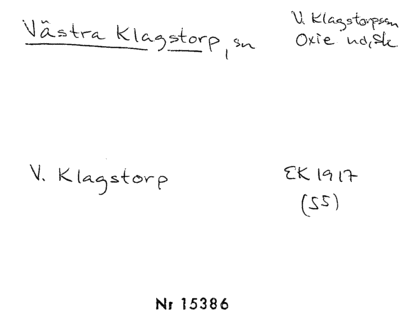 Västra Klagstorp, sn
V. Klagstorps sn
Oxie hd, Sk
V. Klagstorp
EK 1917
(55)
Nr 15386